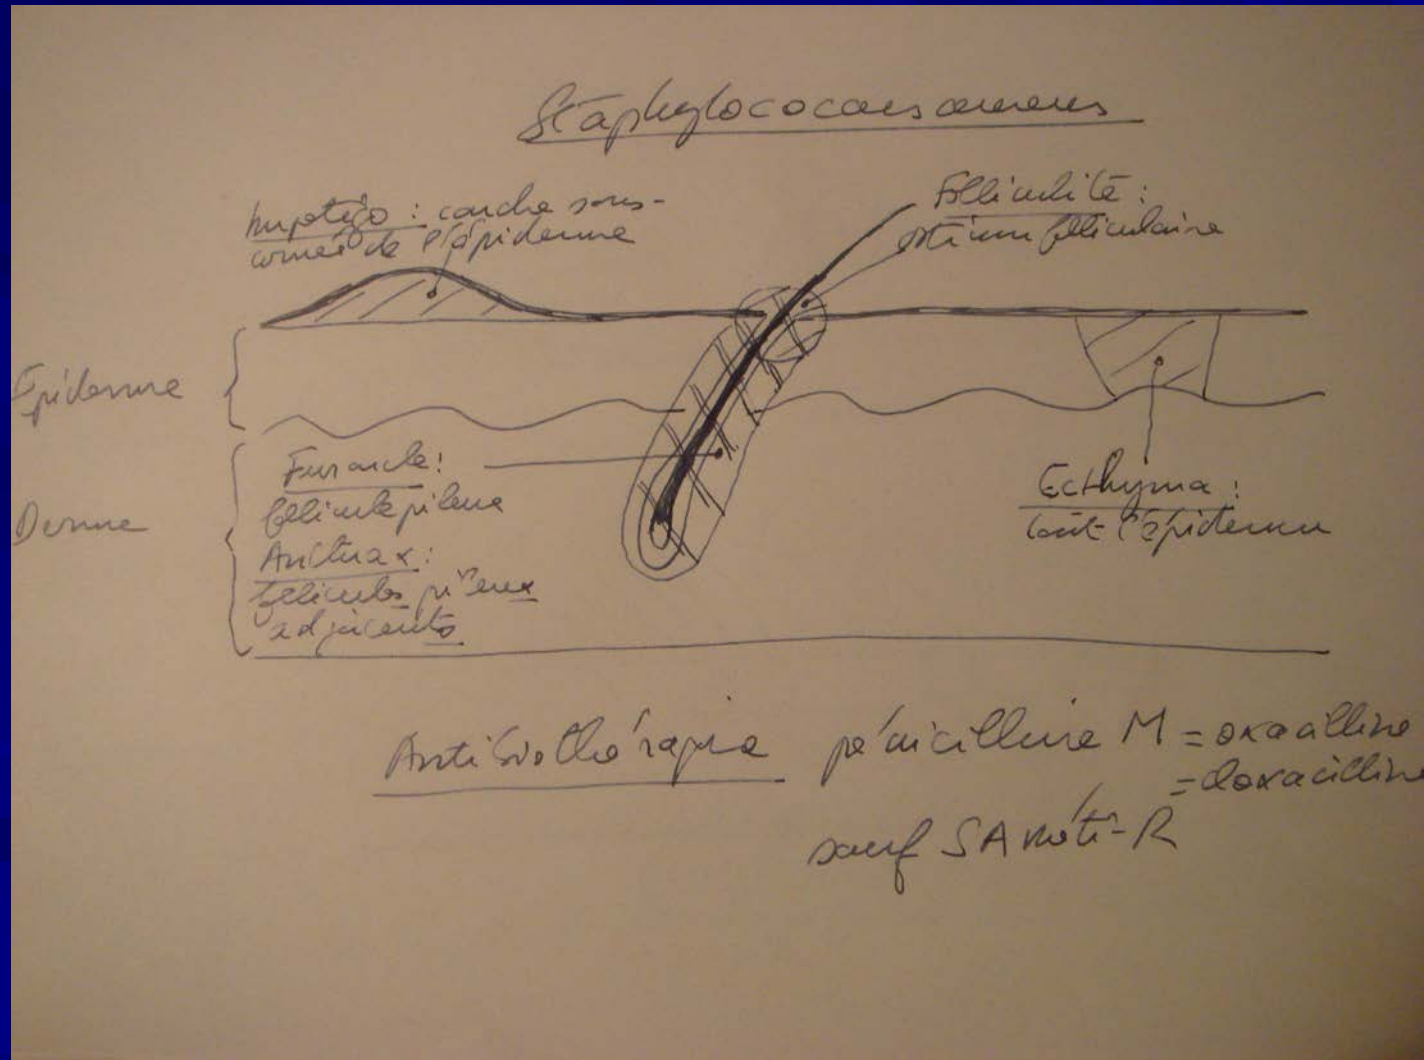 Staphylococcus aureus
Impetigo : couche sous-
cornée de l'épiderme
Folliculite :
ostium folliculaire
Epiderme
Derme
Furoncle :
follicule pileux
Anthrax :
follicules pileux
adjacents
Ecthyma :
tout l'épiderme
Antibiothérapie pénicilline M = oxacilline
= cloxacilline
sauf SA méti-R